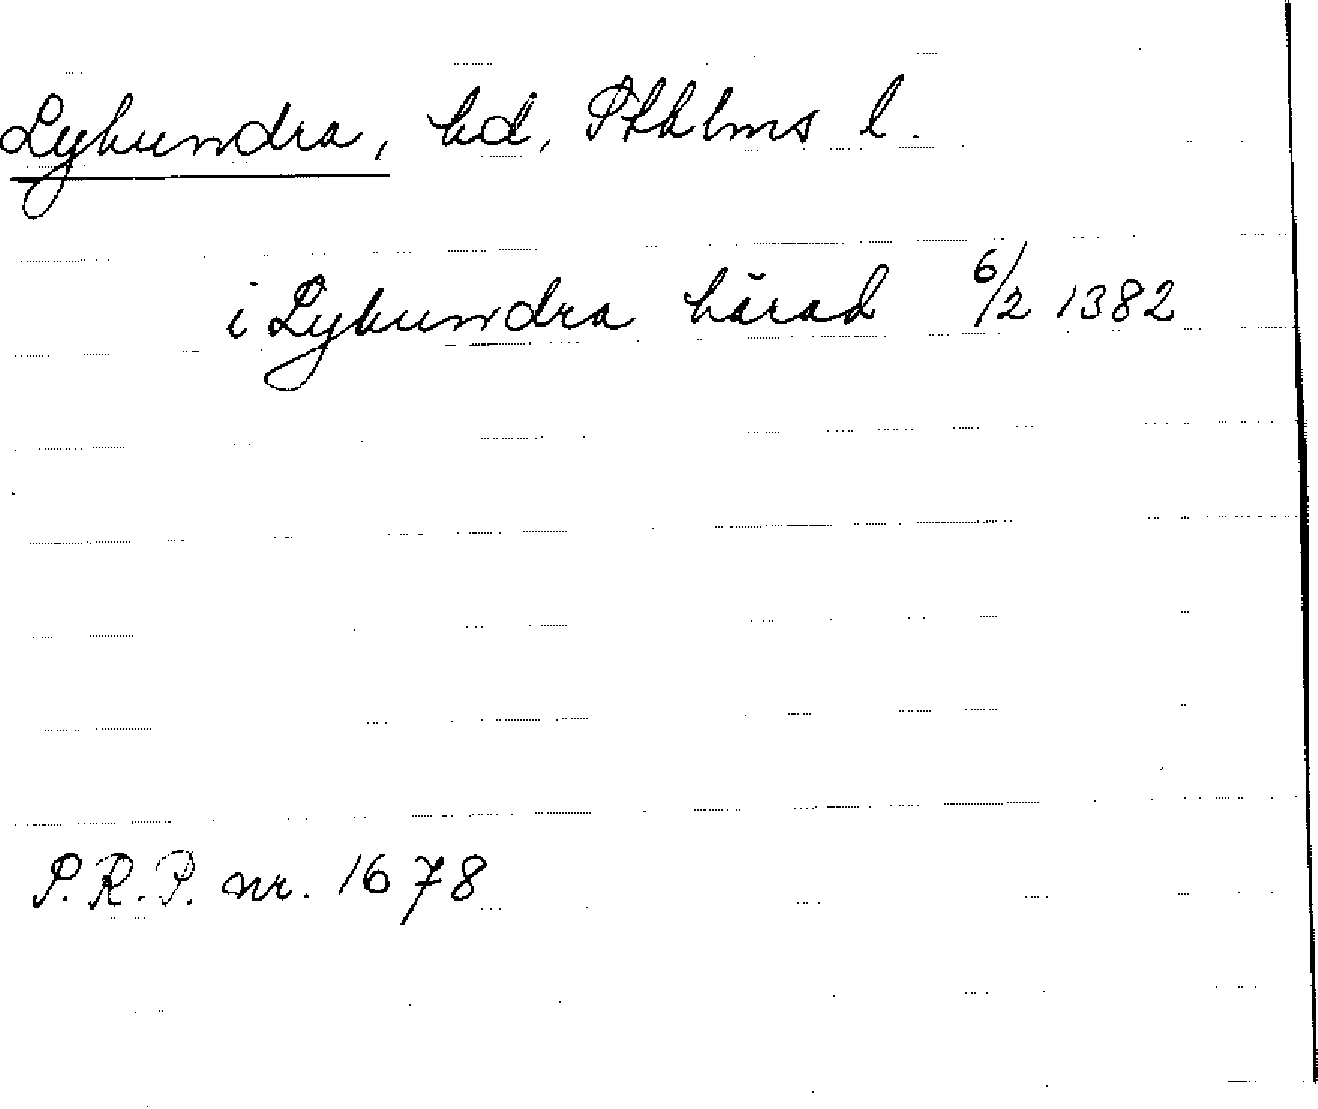 Lyhundra, hd, Sthlms l.
i Lyhundra härad 6/2 1382
S.R.P. nr. 1678